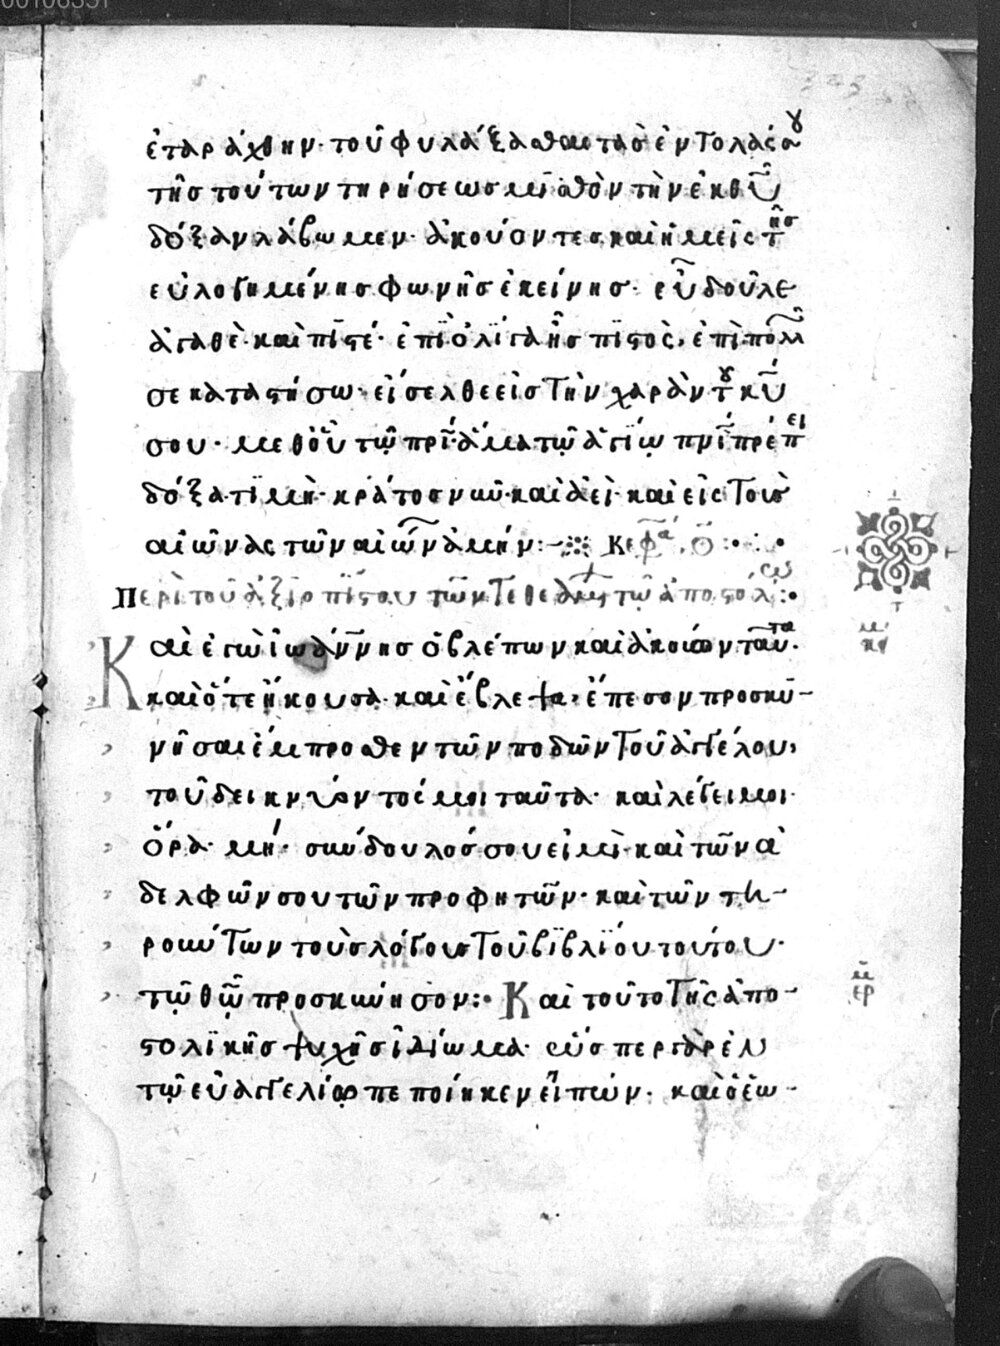 ἐταράχθην· τοῦ φυλάξασθαι τὰς ἐντολάς σου
τῆς τούτων τηρήσεως μισθὸν τὴν ἐκ θῦ
δόξαν λάβωμεν· ἀκούσοντες καὶ ἡμεῖς τῆς
εὐλογημένης φωνῆς ἐκείνης· εὖ δοῦλε
ἀγαθὲ καὶ πιστέ· ἐπὶ ὀλίγα ἦς πιστὸς, ἐπὶ πολλῶν
σε καταστήσω· εἴσελθε εἰς τὴν χαρὰν τοῦ κυ
σου· μεθ' οὗ τῷ πρὶ ἅμα τῷ ἁγίῳ πνὶ πρέπει
δόξα τιμὴ· κράτος νῦν καὶ ἀεὶ· καὶ εἰς τοὺς
αἰῶνας τῶν αἰώνων ἀμήν:- Κεφ. ο
περὶ τοῦ ἀξιοπίστου τῶν τεθεαμένων τῷ ἀποστόλω:
Καὶ ἐγὼ ἰωάννης ὁ βλέπων καὶ ἀκούων ταῦτα·
καὶ ὅτε ἤκουσα· καὶ ἔβλεψα, ἔπεσον προσκυ-
νῆσαι ἔμπροσθεν τῶν ποδῶν τοῦ ἀγγέλου,
τοῦ δεικνύοντός μοι ταῦτα· καὶ λέγει μοι·
ὅρα μή· σύνδουλός σου εἰμὶ· καὶ τῶν ἀ
δελφῶν σου τῶν προφητῶν· καὶ τῶν τη-
ρούντων τοὺς λόγους τοῦ βιβλίου τούτου·
τῷ θῶ προσκύνησον: Καὶ τοῦτο τῆς ἀπο-
στολικῆς ψυχῆς ἰδίωμα· ὥσπερ γὰρ ἐν
τῷ εὐαγγελίῳ πεποίηκεν εἰπών· καὶ ὁ ἑω-